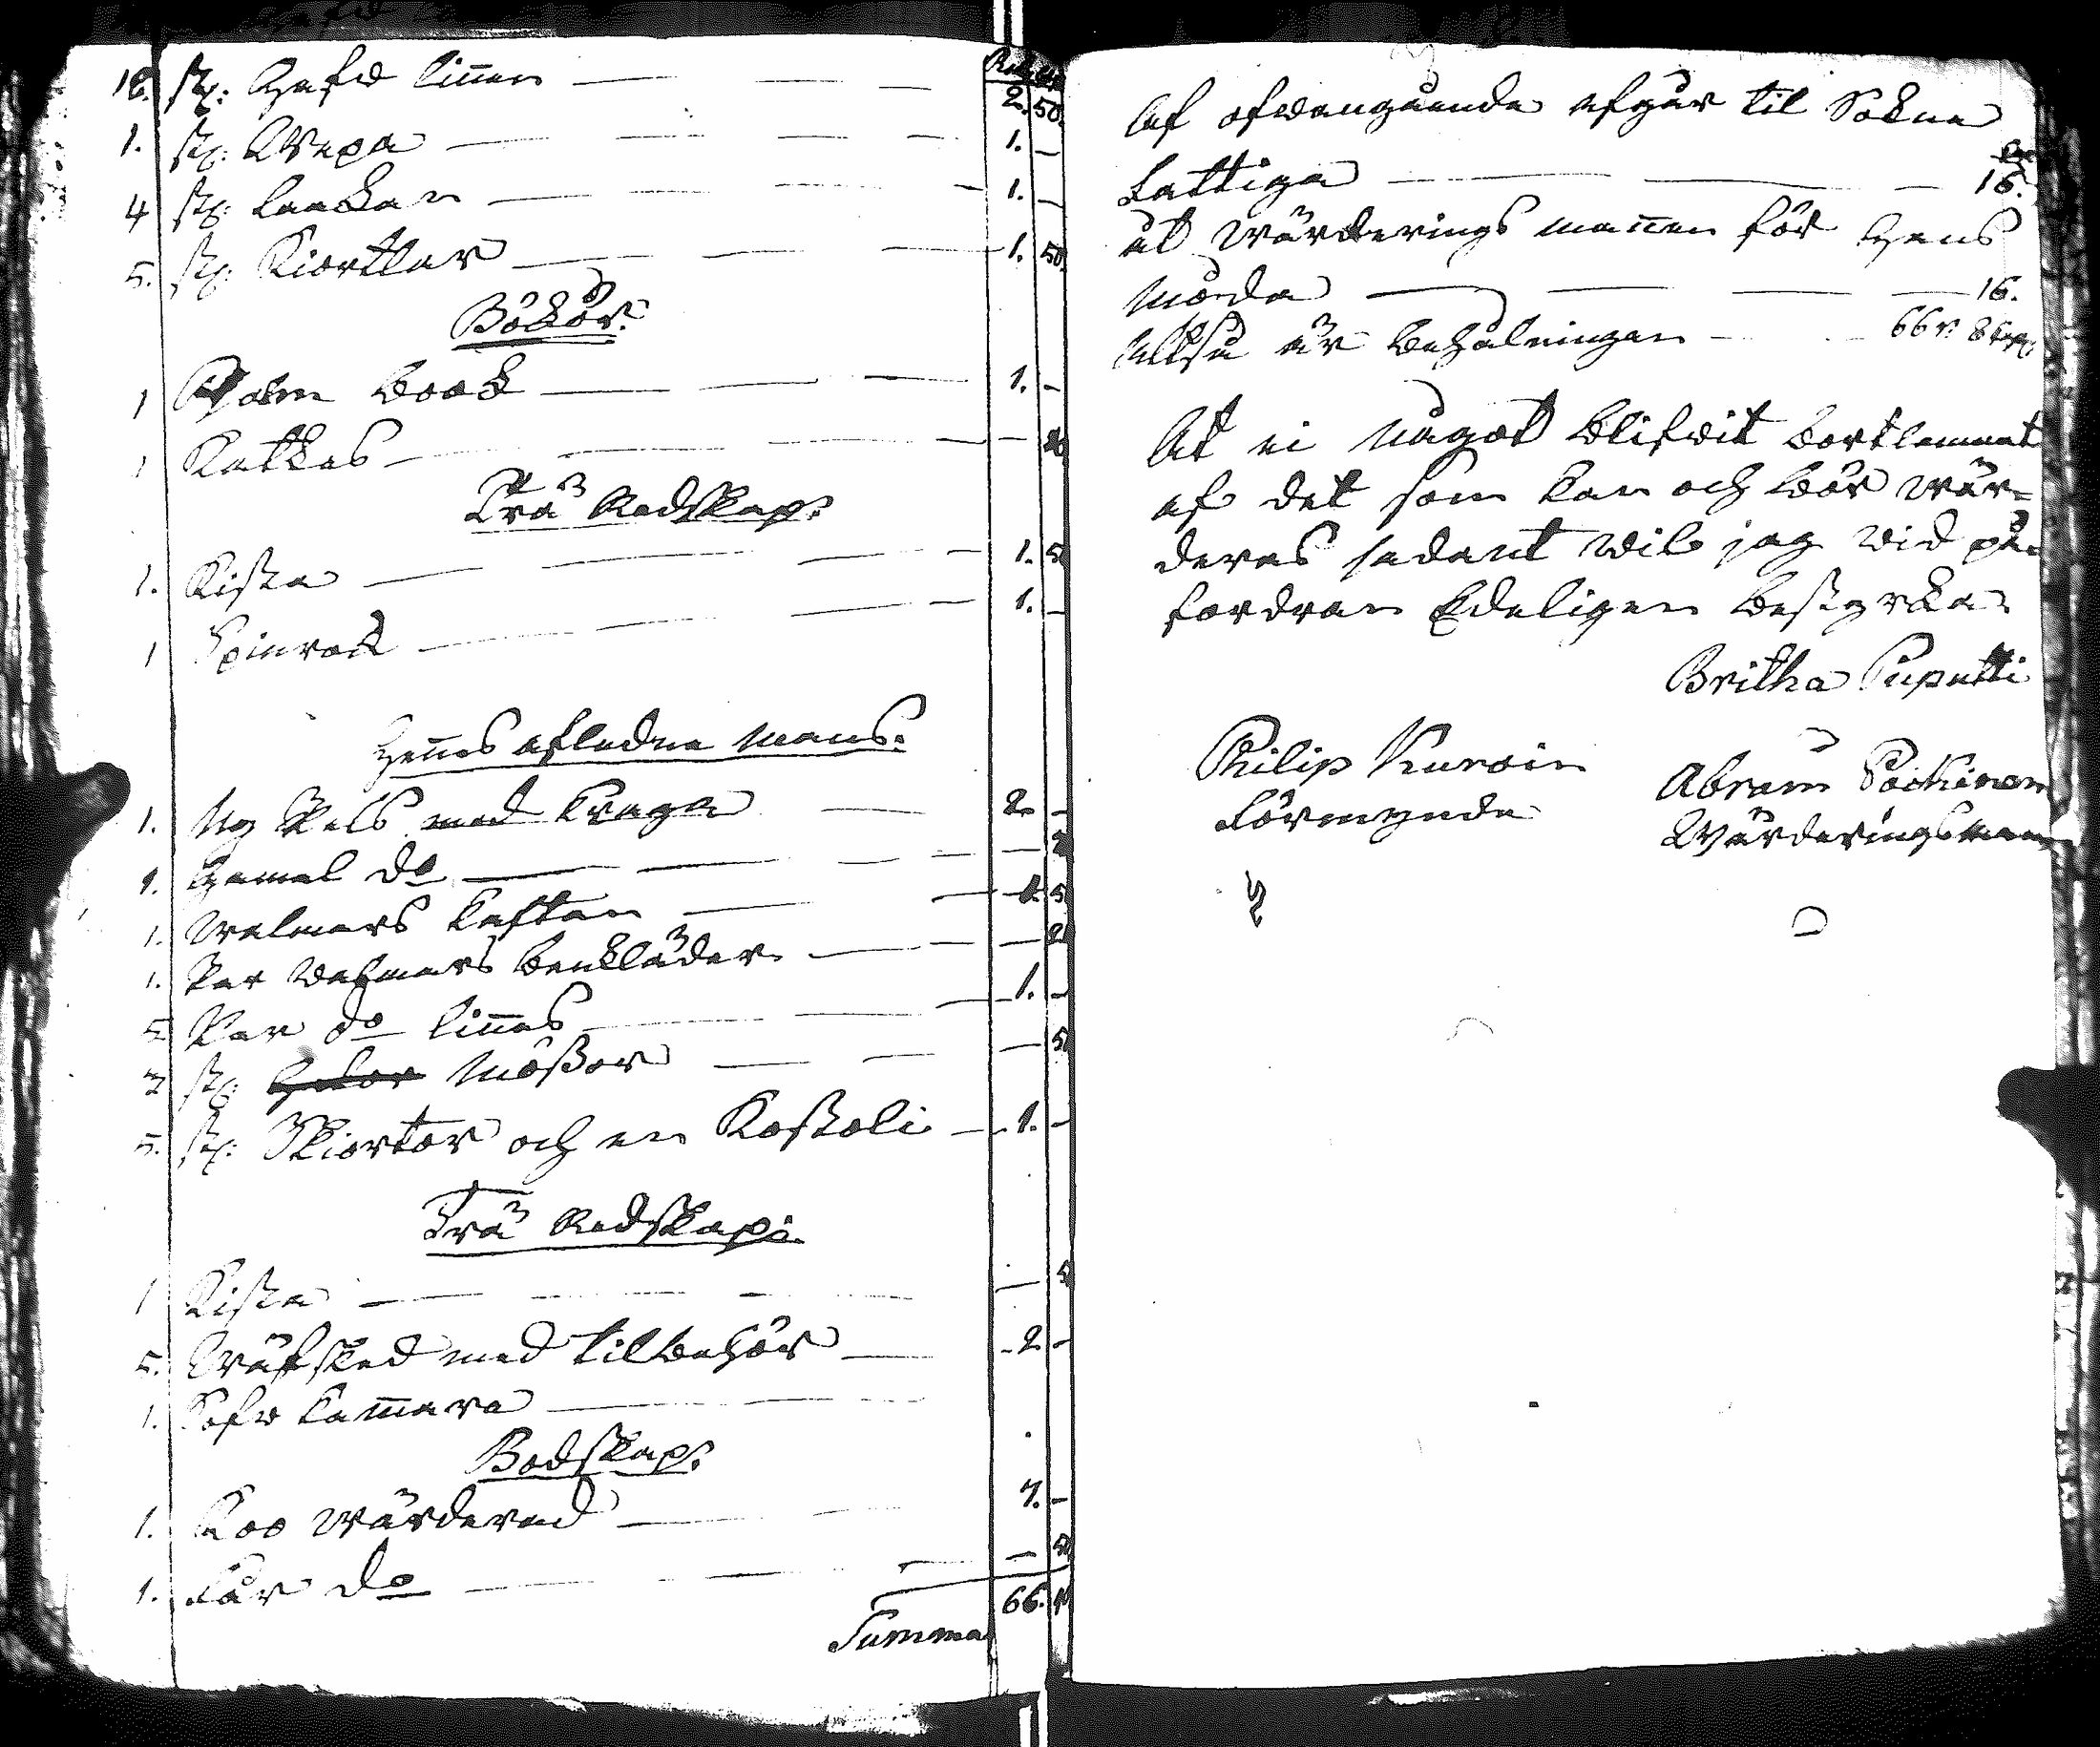 Rub. Cop.
18. st: Hufw linnen — — — 2. 50.
1. st: Wepa — — — 1. —
4 st: Laakan — — — 1. —
5. st: Kiortlar — — — 1. 50.
Böker.
1 Psalm Book — — — 1. —
1 Katkes — — —
Trä Redskap:
1. Kista — — — 1. 50
1 Spinrock — — — 1. —
Hennes aflednes Mans:
1. Ny Pels med Kraga — 2. —
1. Gamal do — — —
1. Walmars Kaftan — — 1. 50
1. Par Walmars benkläder — —
5 Par do linnes — — 1. —
2 st: Mössor — — — 50
5. st: Skiortor och en Kostoli — 1. —
Trä Redskap:
1 Kista — — — 50
5. Wäfsked med tilbehör — 2 —
1. Sofw Kammare — — —
Bodskap:
1. Koo wärderad — — 7. —
1. Får do — — — 50
Summa 66.
Af ofwanguende afgår til Sokne
Fattiga — — — 16.
åt Wärderings mannen för hans
Möda — — — 16.
Altså är behålningen — — 66 r:
At ei något blifwit bortlemnat
af det som kan och bör wär=
deras sadant wil jag wid på=
fordran Edeligen bestyrka
Britha Puputti
Philip Kurvin Abram
Förmynda Wärderingsman